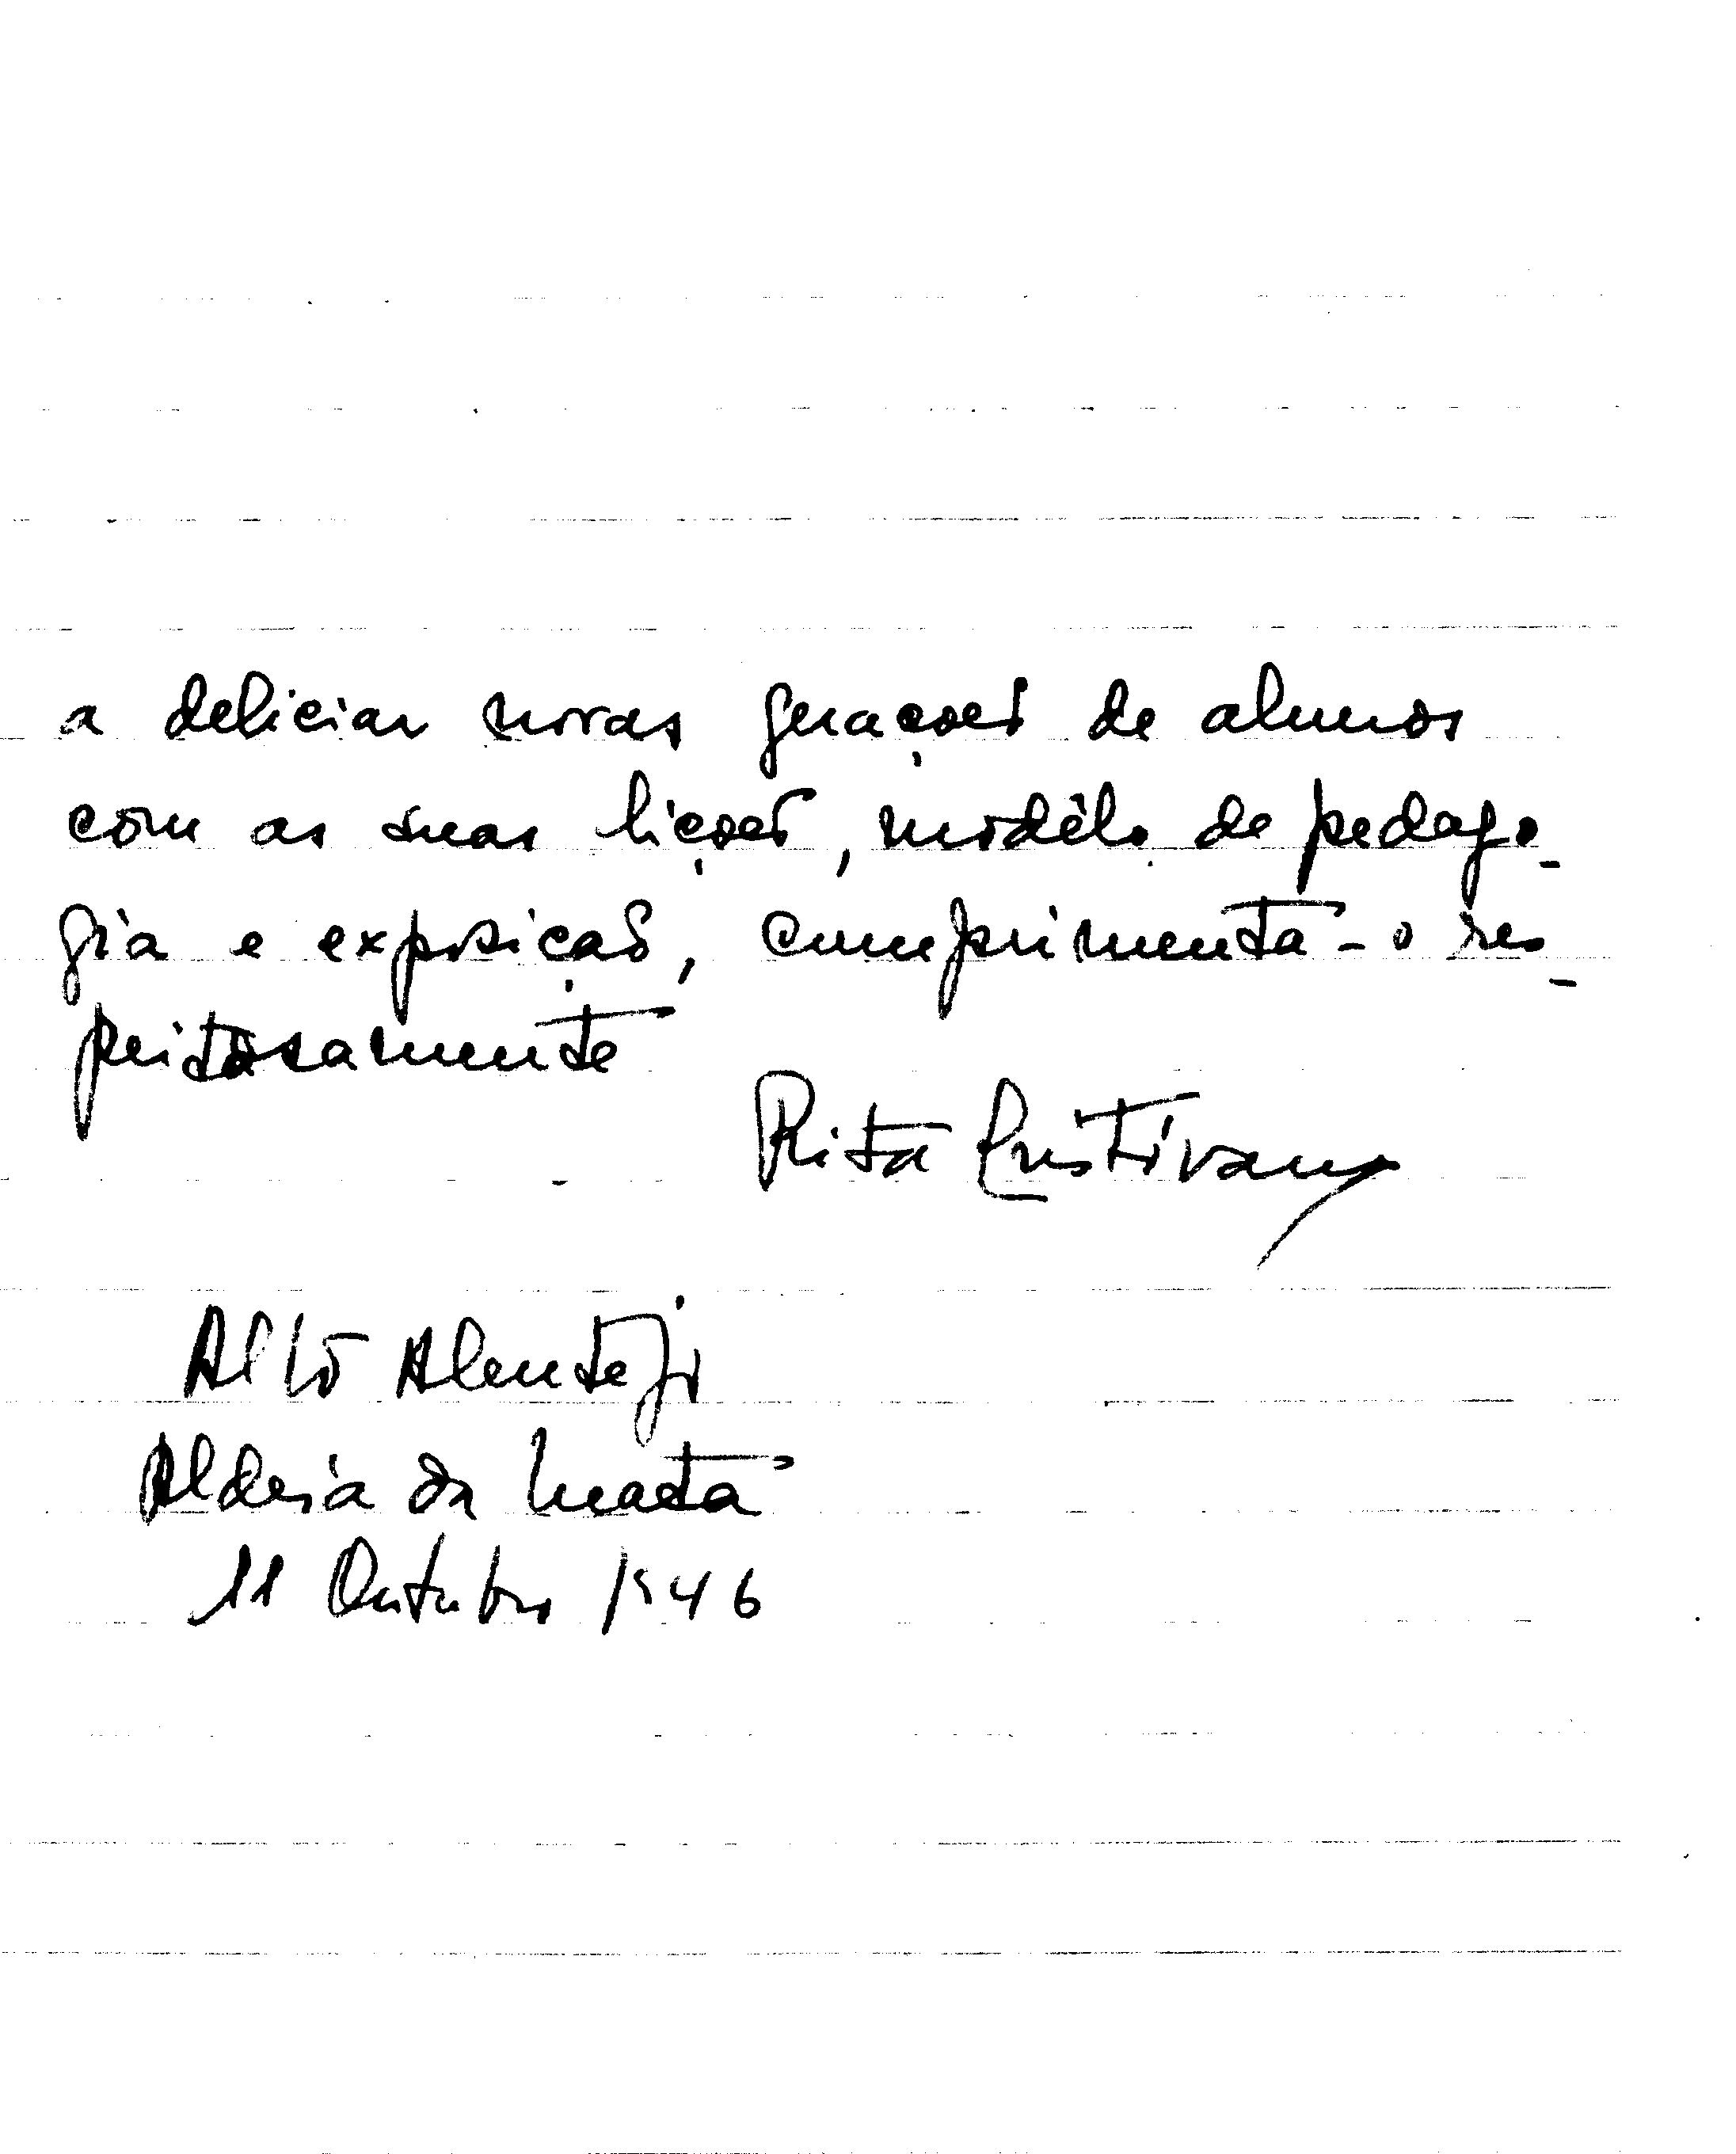 a deliciar novas gerações de alunos
com as suas lições, modêlo de pedago-
gia e exposição, cumprimenta-o res-
peitosamente
Rita
Alto Alentejo
Aldeia da Mata
11 Outubro 1946